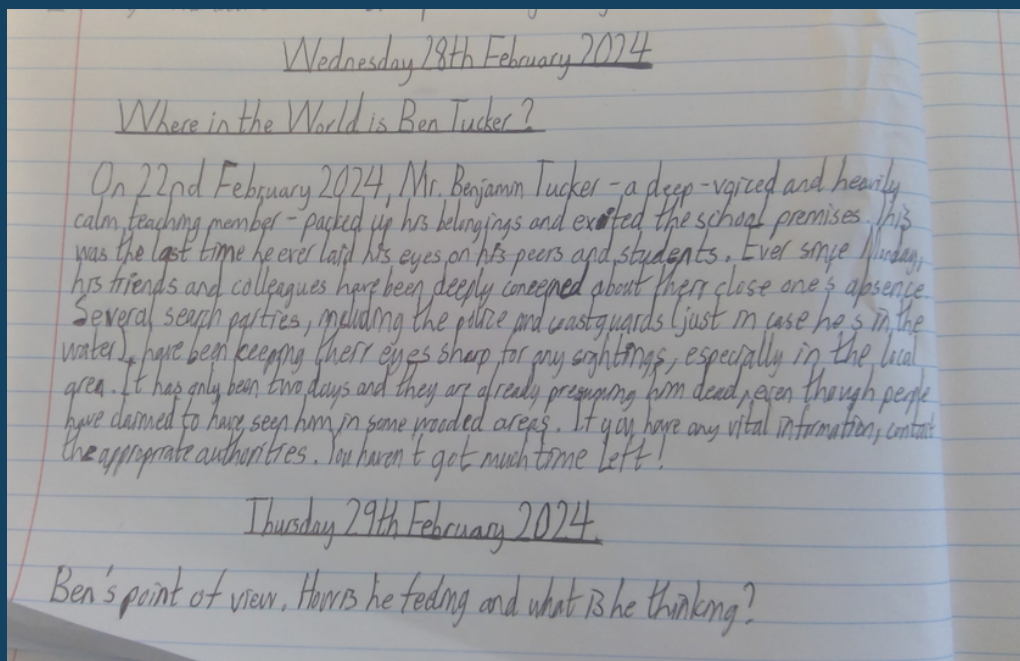 Wednesday 28th February 2024
Where in the World is Ben Tucker?
On 22nd February 2024, Mr. Benjamin Tucker - a deep-voiced and heavily
calm teaching member - packed up his belongings and exited the school premises. This
was the last time he ever laid his eyes on his peers and students. Ever since Monday,
his friends and colleagues have been deeply concerned about their close one's absence.
Several search parties, including the police and coastguards (just in case he's in the
water), have been keeping their eyes sharp for any sightings, especially in the local
area. It has only been two days and they are already presuming him dead, even though people
have claimed to have seen him in some wooded areas. If you have any vital information, contact
the appropriate authorities. You haven't got much time left!
Thursday 29th February 2024.
Ben's point of view. How is he feeling and what is he thinking?